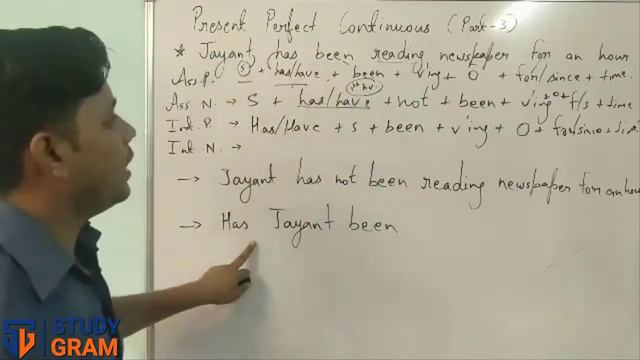 Present Perfect Continuous (Part-3)
* Jayant has been reading newspaper for an hour
Ass. P. S + has/have + been + V'ing + O + for/since + time.
1st HV
Ass N. → S + has/have + not + been + V'ing + O + f/s + time
Int P. → Has/Have + S + been + V'ing + O + for/since + time
Int N. →
→ Jayant has not been reading newspaper for an hour
→ Has Jayant been
STUDY
GRAM